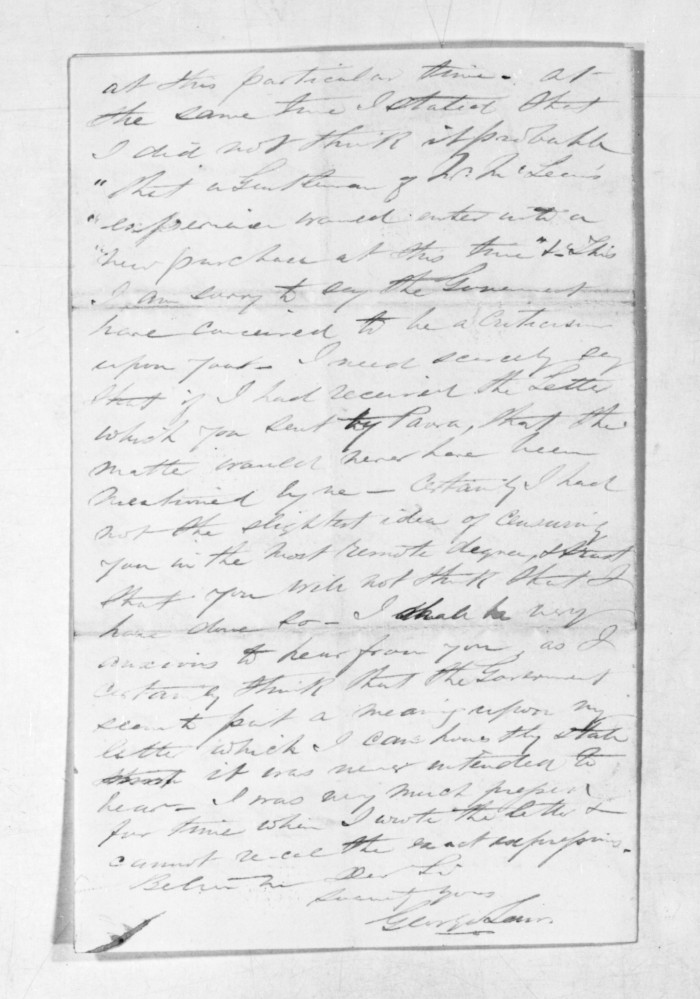 at this particular time. at
the same time I stated that
I did not think it probable
"that a Gentleman of Mr. McLean's
"experience would enter into a
"new purchase at this time" &c This
I am sorry to say the Government
have conceived to be a Criticism
upon you. I need scarcely say
that if I had received the Letter
which you sent by Paora, that the
matter would never have been
mentioned by me — Certainly I had
not the slightest idea of censuring
you in the most remote degree, & trust
that you will not think that I
have done so — I shall be very
anxious to hear from you, as I
certainly think that the Government
seem to put a meaning upon my
letter which I can honestly state
it was never intended to
bear — I was very much pressed
for time when I wrote the letter &
cannot recal the exact expressions.
Believe me Dear Sir
yours
George Law.